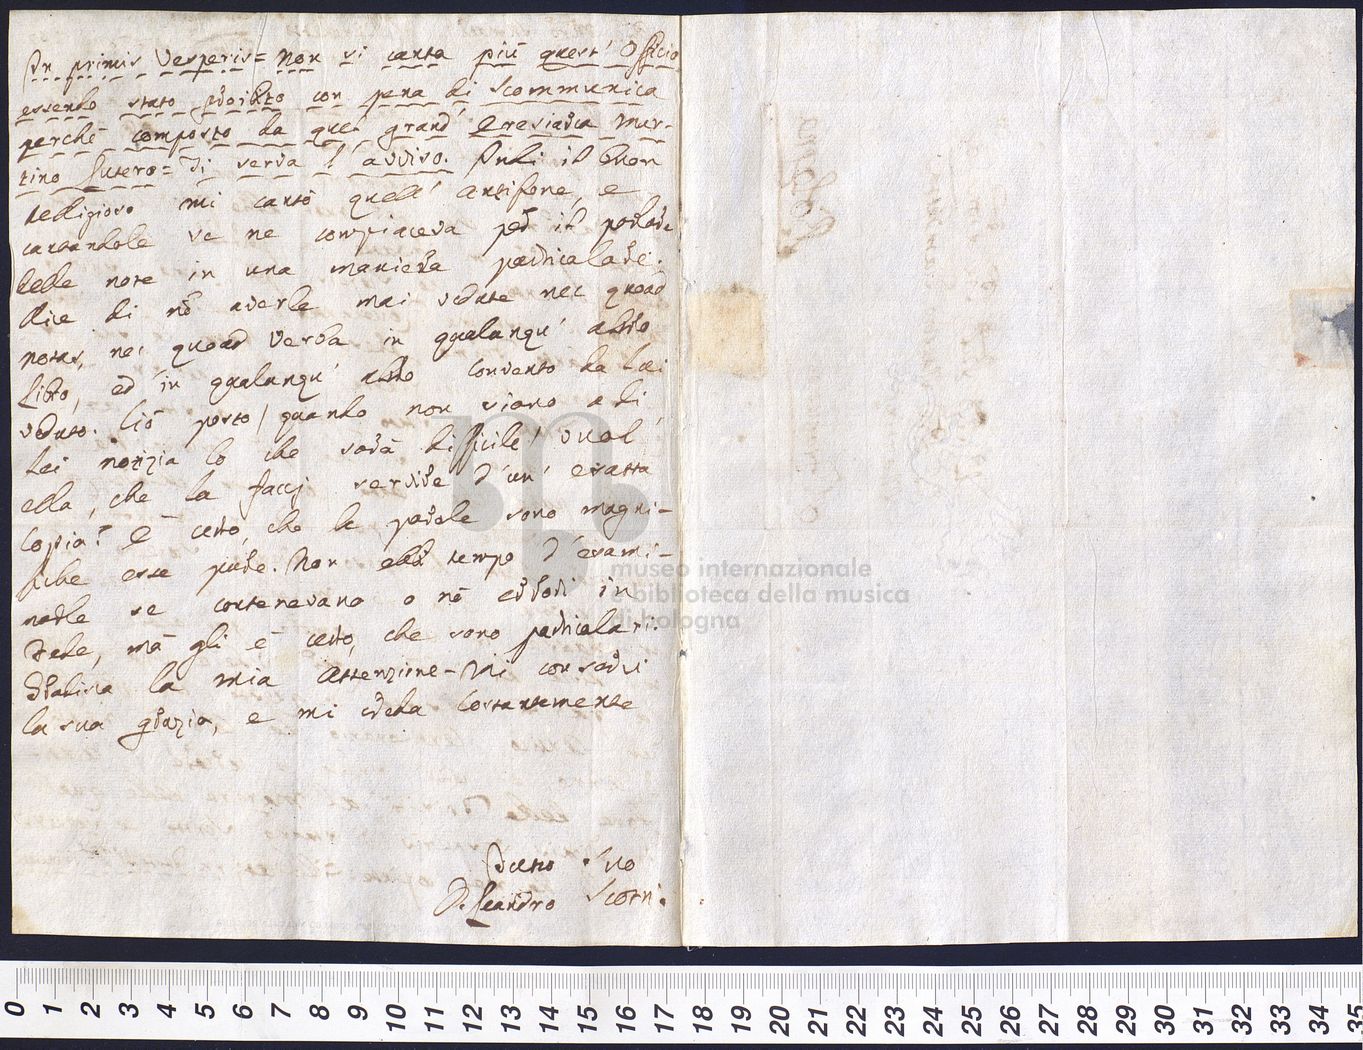 In primis Vesperis = Non si canta più quest' Officio
essendo stato proibito con pena di Scommunica
perchè composto da quel grand' Eresiarca Mar-
tino Lutero = Di serva l'avviso. Indi il buon
Religioso mi cantò quell' antifone, e
cantandole se ne compiaceva per il portare
delle note in una maniera particolare.
dice di nõ averle mai vedute nec quoad
notas, nec quoad Verba in qualunqu' altro
libro, ed in qualunqu' altro Convento da lui
veduto. Ciò posto / quando non siano a di
lei notizia lo che sarà difficile / vuol
ella, che la facci servire d'un' esatta
Copia? È certo, che le parole sono magni-
fiche esse pure. Non ebbi tempo d'esami-
narle se contenevano o nõ errori in
Fede, mà gli è certo, che sono particolari.
Gradisca la mia attenzione - Mi conservi
la sua grazia, e mi creda Costantemente
Suo
D. Leandro Scorni.
museo internazionale
e biblioteca della musica
di bologna
0 1 2 3 4 5 6 7 8 9 10 11 12 13 14 15 16 17 18 19 20 21 22 23 24 25 26 27 28 29 30 31 32 33 34 35